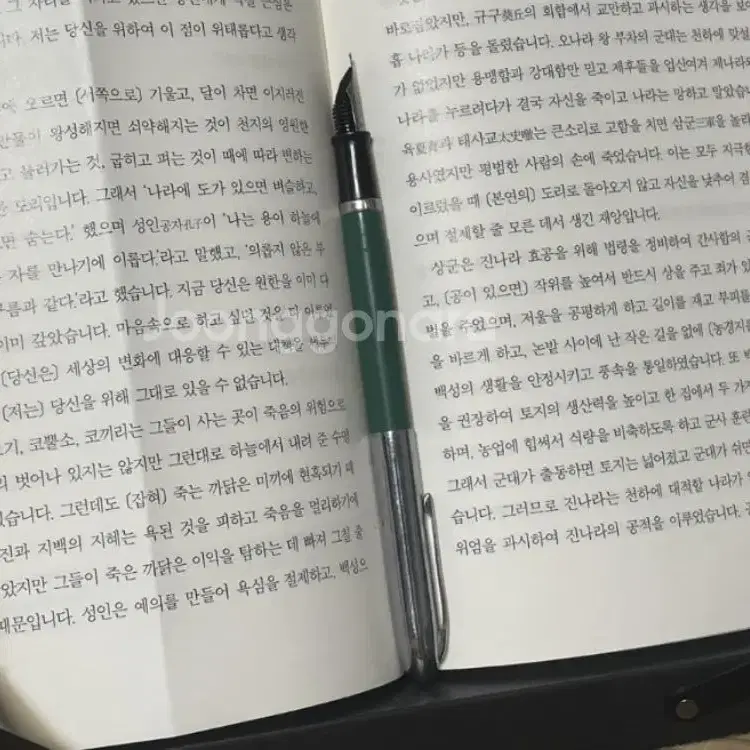 니다. 저는 당신을 위하여 이 점이 위태롭다고 생각
오르면 (서쪽으로) 기울고, 달이 차면 이지러진
만물이 왕성해지면 쇠약해지는 것이 천지의 영원한
고 물러가는 것, 굽히고 펴는 것이 때에 따라 변하는
도리입니다. 그래서 '나라에 도가 있으면 벼슬하고,
면 숨는다.' 했으며 성인공자孔子이 '나는 용이 하늘에
자를 만나기에 이롭다.'라고 말했고, '의롭지 않은 부
구름과 같다.'라고 했습니다. 지금 당신은 원한을 이미 다
이미 갚았습니다. 마음속으로 하고 싶던 것은 다
(당신은) 세상의 변화에 대응할 수 있는
(저는) 당신을 위해 그대로 있을 수 없습니다.
기, 코뿔소, 코끼리는 그들이 사는 곳이 죽음의 위험으로
벗어나 있지는 않지만 그런대로 하늘에서 내려 준 수명
있습니다. 그런데도 (잡혀) 죽는 까닭은 미끼에 현혹되기 때
진과 지백의 지혜는 욕된 것을 피하고 죽음을 멀리하기에
았지만 그들이 죽은 까닭은 이익을 탐하는 데 빠져 그칠 줄
때문입니다. 성인은 예의를 만들어 욕심을 절제하고, 백성으
바로잡았지만, 규구葵丘의 회합에서 교만하고 과시하는 생각을 보여
홉 나라가 등을 돌렸습니다. 오나라 왕 부차의 군대는 천하에 맞설
가 없었지만 용맹함과 강대함만 믿고 제후들을 업신여겨 제나라와
나라를 누르려다가 결국 자신을 죽이고 나라는 망하고 말았습니다
과 태사교太史噭는 큰소리로 고함을 치면 삼군三軍을 놀라
용사였지만 평범한 사람의 손에 죽었습니다. 이는 모두 지극함
이르렀을 때 (본연의) 도리로 돌아오지 않고 자신을 낮추어 겸
으며 절제할 줄 모른 데서 생긴 재앙입니다.
상군은 진나라 효공을 위해 법령을 정비하여 간사함의
고, (공이 있으면) 작위를 높여서 반드시 상을 주고 죄가 있
벌을 주었으며, 저울을 공평하게 하고 길이를 재고 부피를
을 바르게 하고, 논밭 사이에 난 작은 길을 없애 (농경지를
백성의 생활을 안정시키고 풍속을 통일하였습니다. 또
을 권장하여 토지의 생산력을 높이고 한 집에서 두 가
하며, 농업에 힘써서 식량을 비축하도록 하고 군사 훈련
그래서 군대가 출동하면 토지는 넓어졌고 군대가 쉬면
습니다. 그러므로 진나라는 천하에 대적할 나라가
위엄을 과시하여 진나라의 공적을 이루었습니다.
joonggonara